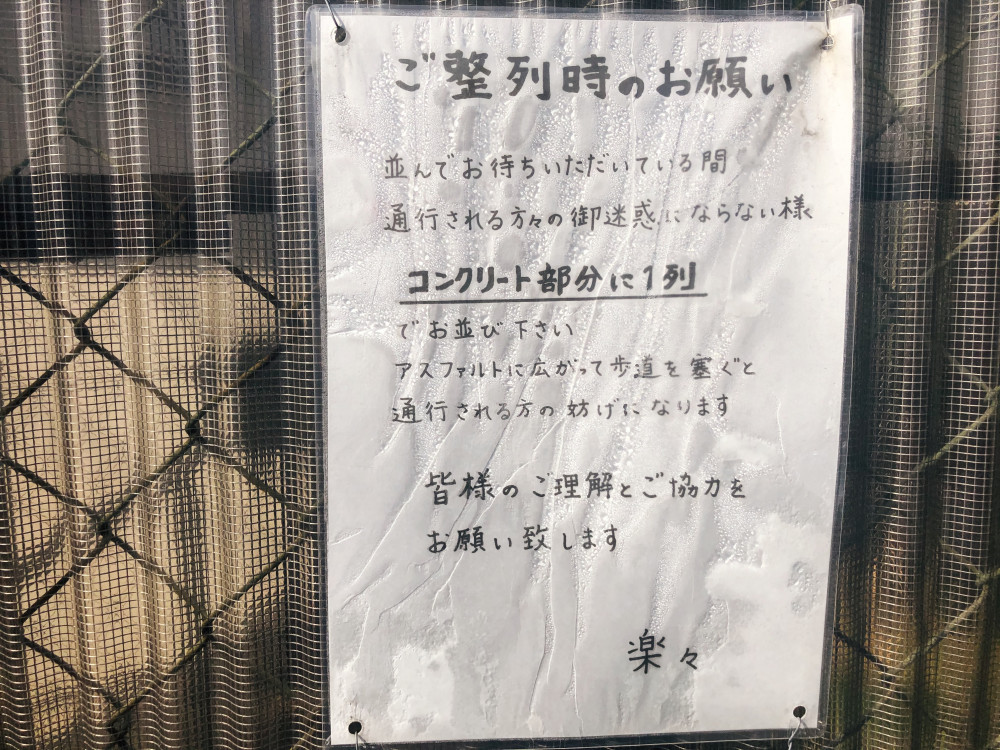 ご整列時のお願い
並んでお待ちいただいている間
通行される方々の御迷惑にならない様
コンクリート部分に1列
でお並び下さい
アスファルトに広がって歩道を塞ぐと
通行される方の妨げになります
皆様のご理解とご協力を
お願い致します
楽々